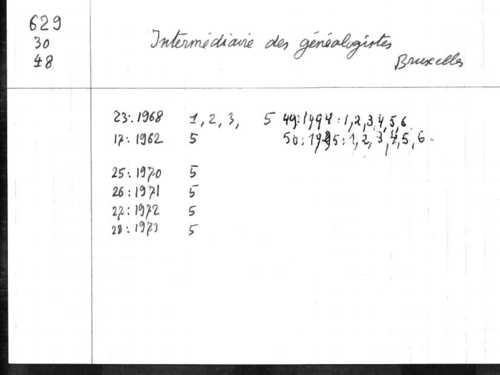 629
30
48
Intermédiaire des généalogistes
Bruxelles
23:.1968 1, 2, 3, 5 49:1994:1,2,3,4,5,6
17:.1962 5 50:1995:1,2,3,4,5,6.
25:1970 5
26:1971 5
27:1972 5
28:1973 5